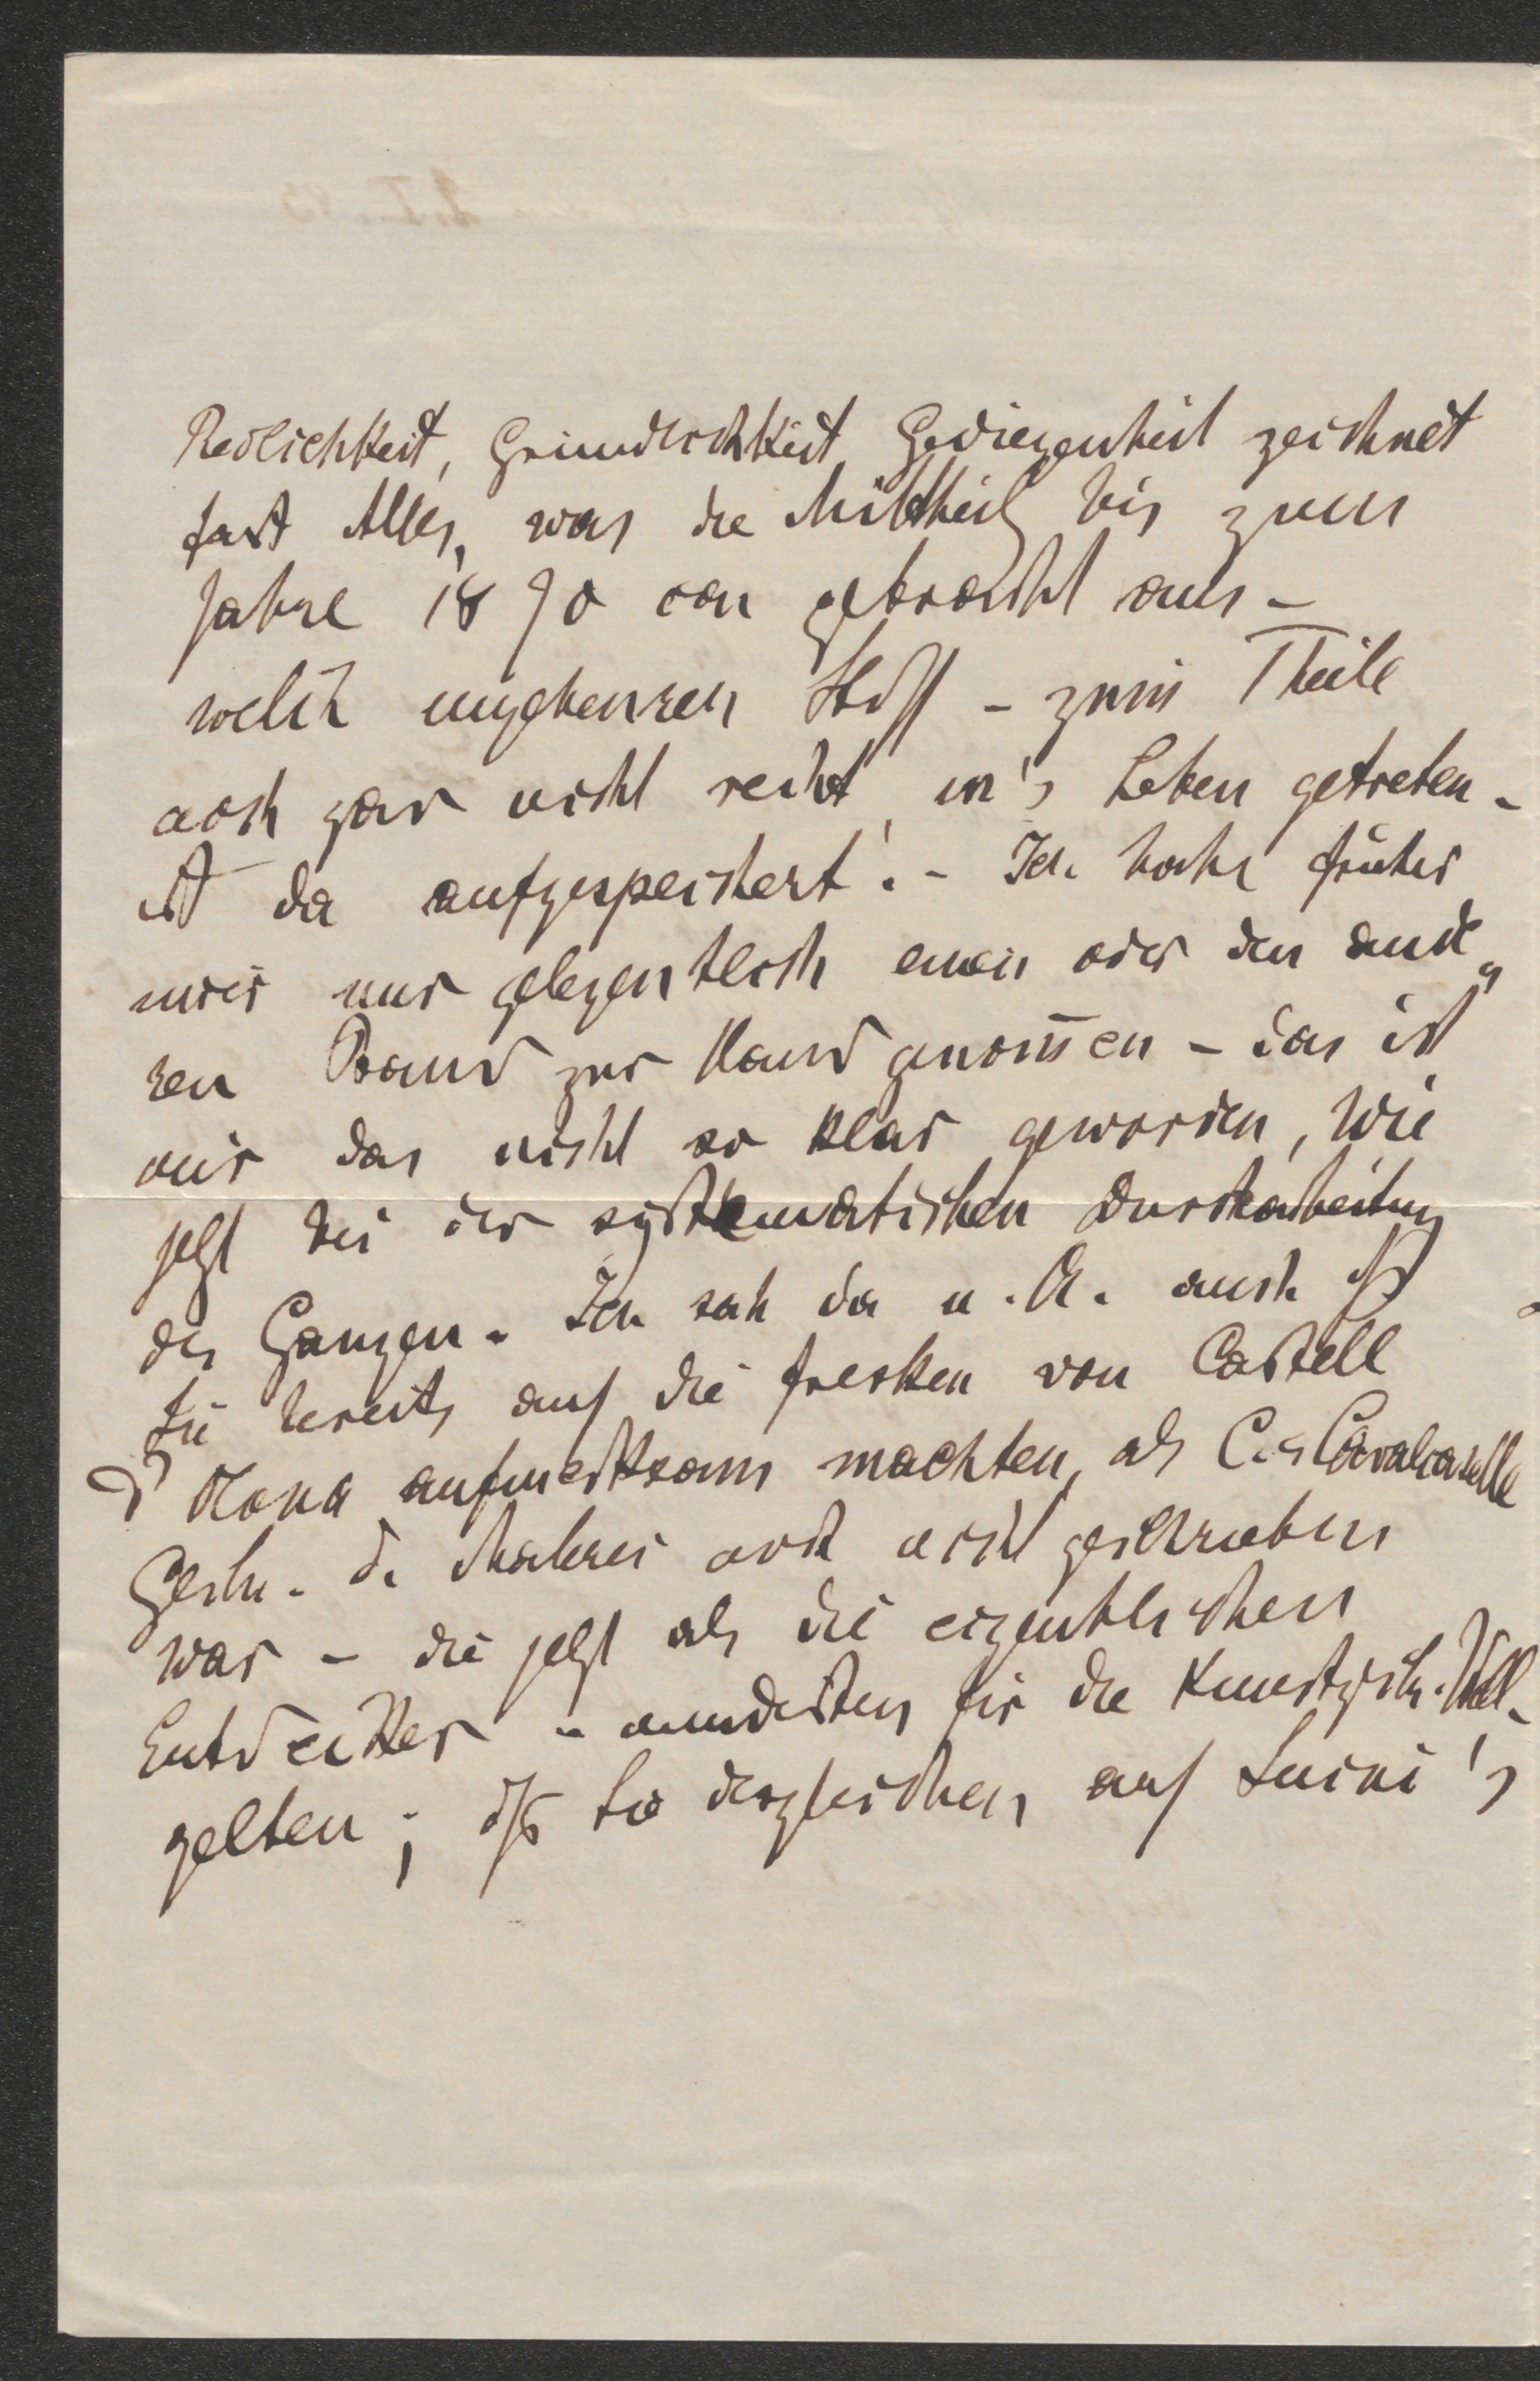 Redlichkeit, Gründlichkeit Gediegenheit zeichnet
fast Alles, was die Mittheilg bis zum
Jahre 1870 ca gebracht aus –
welch ungeheuren Stoff – zum Theile
noch gar nicht recht in's Leben getreten –
ist da aufgespeichert! – Ich habe früher
immer nur gelegentlich einen oder den ande„
ren Band zur Hand genom̄en – da ist
mir das nicht so klar geworden, wie
jetzt bei der systematischen Durcharbeitung
des Ganzen. Ich sah da u. A. auch dß
Sie bereits auf die Fresken von Castell
d'Olona aufmerksam machten, als C. u Cavalcaselle
Gesch. d. Malerei noch nicht geschrieben
war – die jetzt als die eigentlichen
Entdecker – mindestens für die Kunstgesch. Welt –
gelten; dß Sie desgleichen auf Luini's